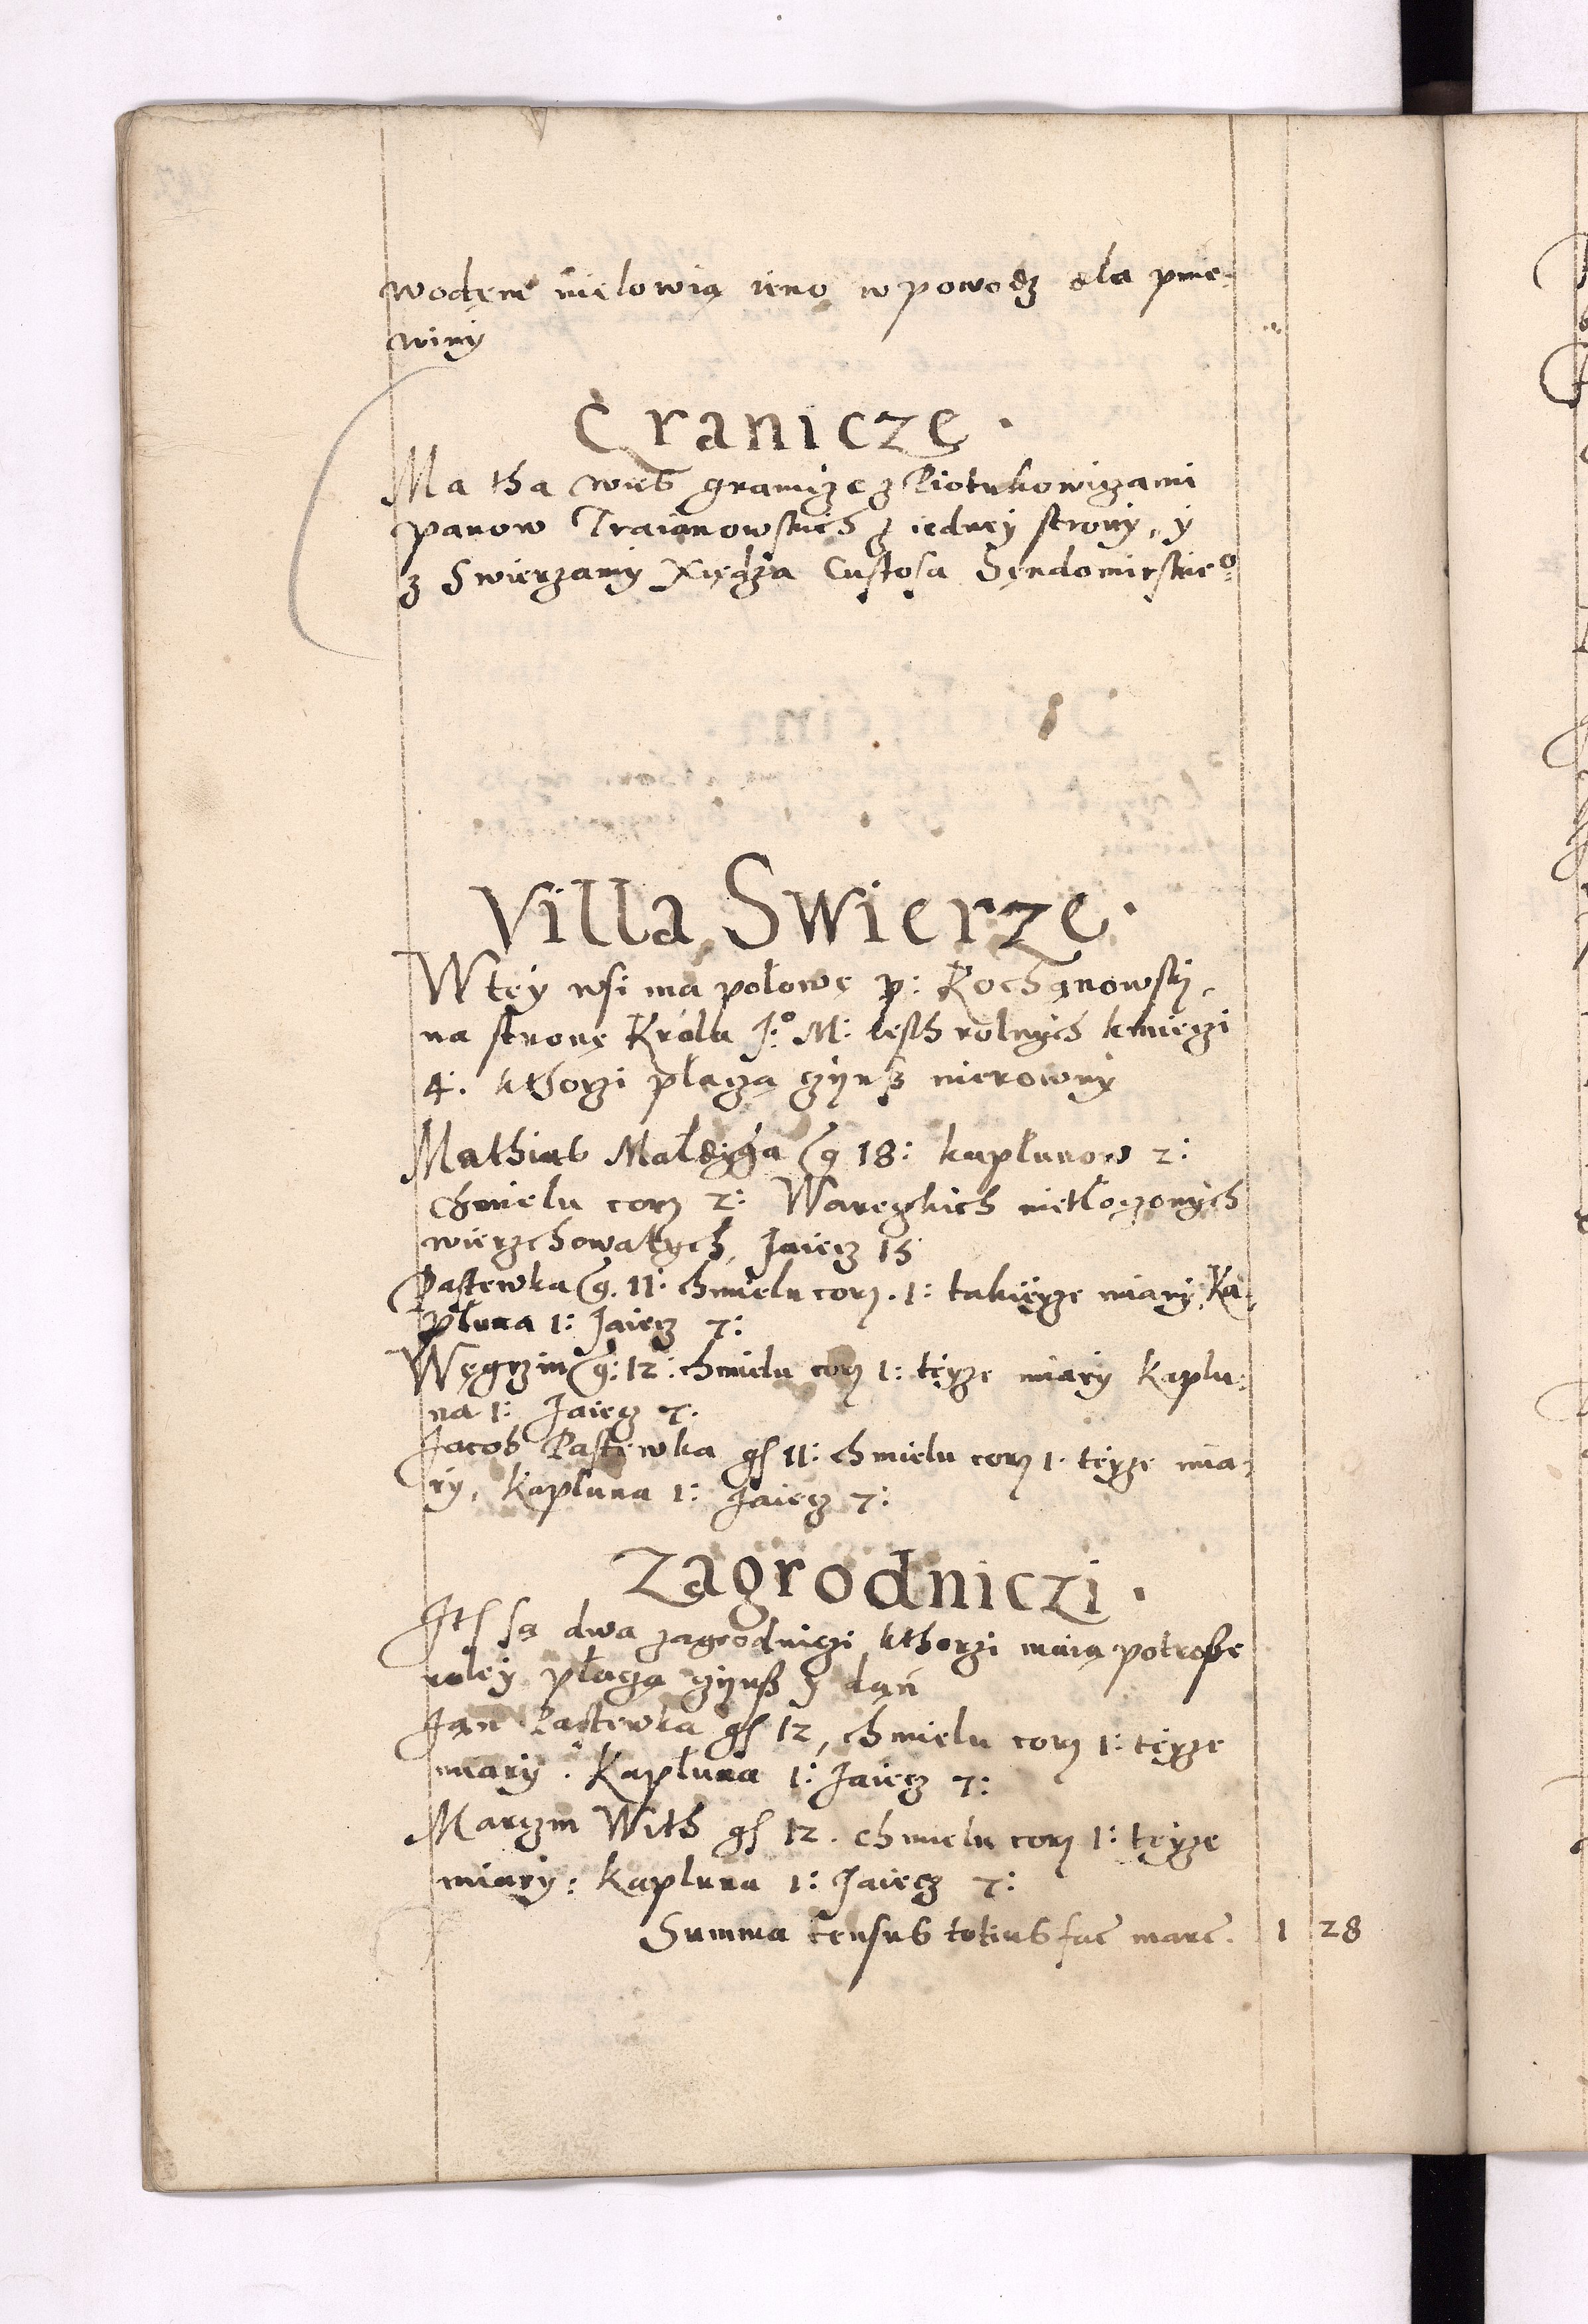 wodęm nielowią ieno w powodz dla pnie-
winy
Granicze.
Ma tha wieś granicze z Piotrkowiczami
panow Traianowskich z iedney strony, y
z Swierzamy Xiędza Custosa Sędomirskieo
Villa Swierze.
W tey wsi ma połowę p: Kochanowsky,
na stronę Króla J:o M: iesth rolnych kmieczi
4: kthorzi płaczą czijnsz nierowny
Mathias g 18: kapłunow 2:
Chmielu corz 2: Wareczkich nietłoczonych
wierzchowatych, Jaiecz 15
Pastewka g. 11: chmielu corz. 1: takieyze miary, Ka-
płuna 1: Jaiecz 7:
Węgrzin g: 12: chmielu corz 1: teyze miary Kaplu-
na 1: Jaiecz 7.
Jacob Pastewka gſ 11: chmielu corz 1. teyze mia-
ry, kapluna 1: Jaiecz 7:
Zagrodniczi.
Itſ są dwa zagrodniczi kthorzi maią potrosze
roley płaczą czijnsz y dań
Jan Pastewka gſ 12, chmielu corz 1: teyze
miary. Kapłuna 1: Jaiecz 7:
Marczin With gſ 12. chmielu corz 1: teyze
miary: kapluna 1: Jaiecz 7:
Summa census totius fac marc. 1 28